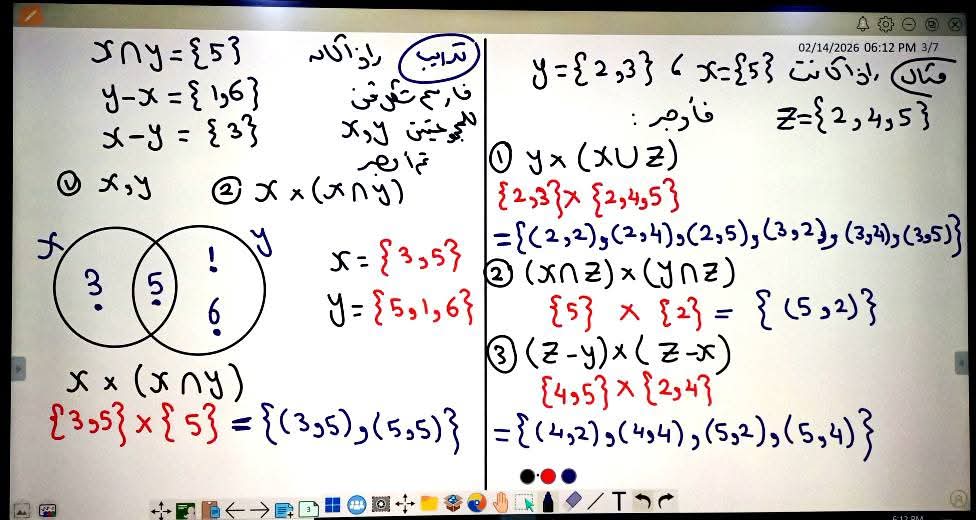 02/14/2026 06:12 PM 3/7
مثال إذا كانت x={5} ، y={2,3}
z={2,4,5} فأوجد :
① y×(x∪z)
{2,3}×{2,4,5}
={(2,2),(2,4),(2,5),(3,2),(3,4),(3,5)}
② (x∩z)×(y∩z)
{5} × {2} = {(5,2)}
③ (z-y)×(z-x)
{4,5}×{2,4}
={(4,2),(4,4),(5,2),(5,4)}
تدريب إذا كان x∩y={5}
y-x={1,6}
x-y={3}
فارسم شكل فن
للمجموعتين x,y
ثم أوجد
① x,y ② x×(x∩y)
x y
3 5 1 6
x={3,5}
y={5,1,6}
x×(x∩y)
{3,5}×{5}={(3,5),(5,5)}
T
6:12 PM